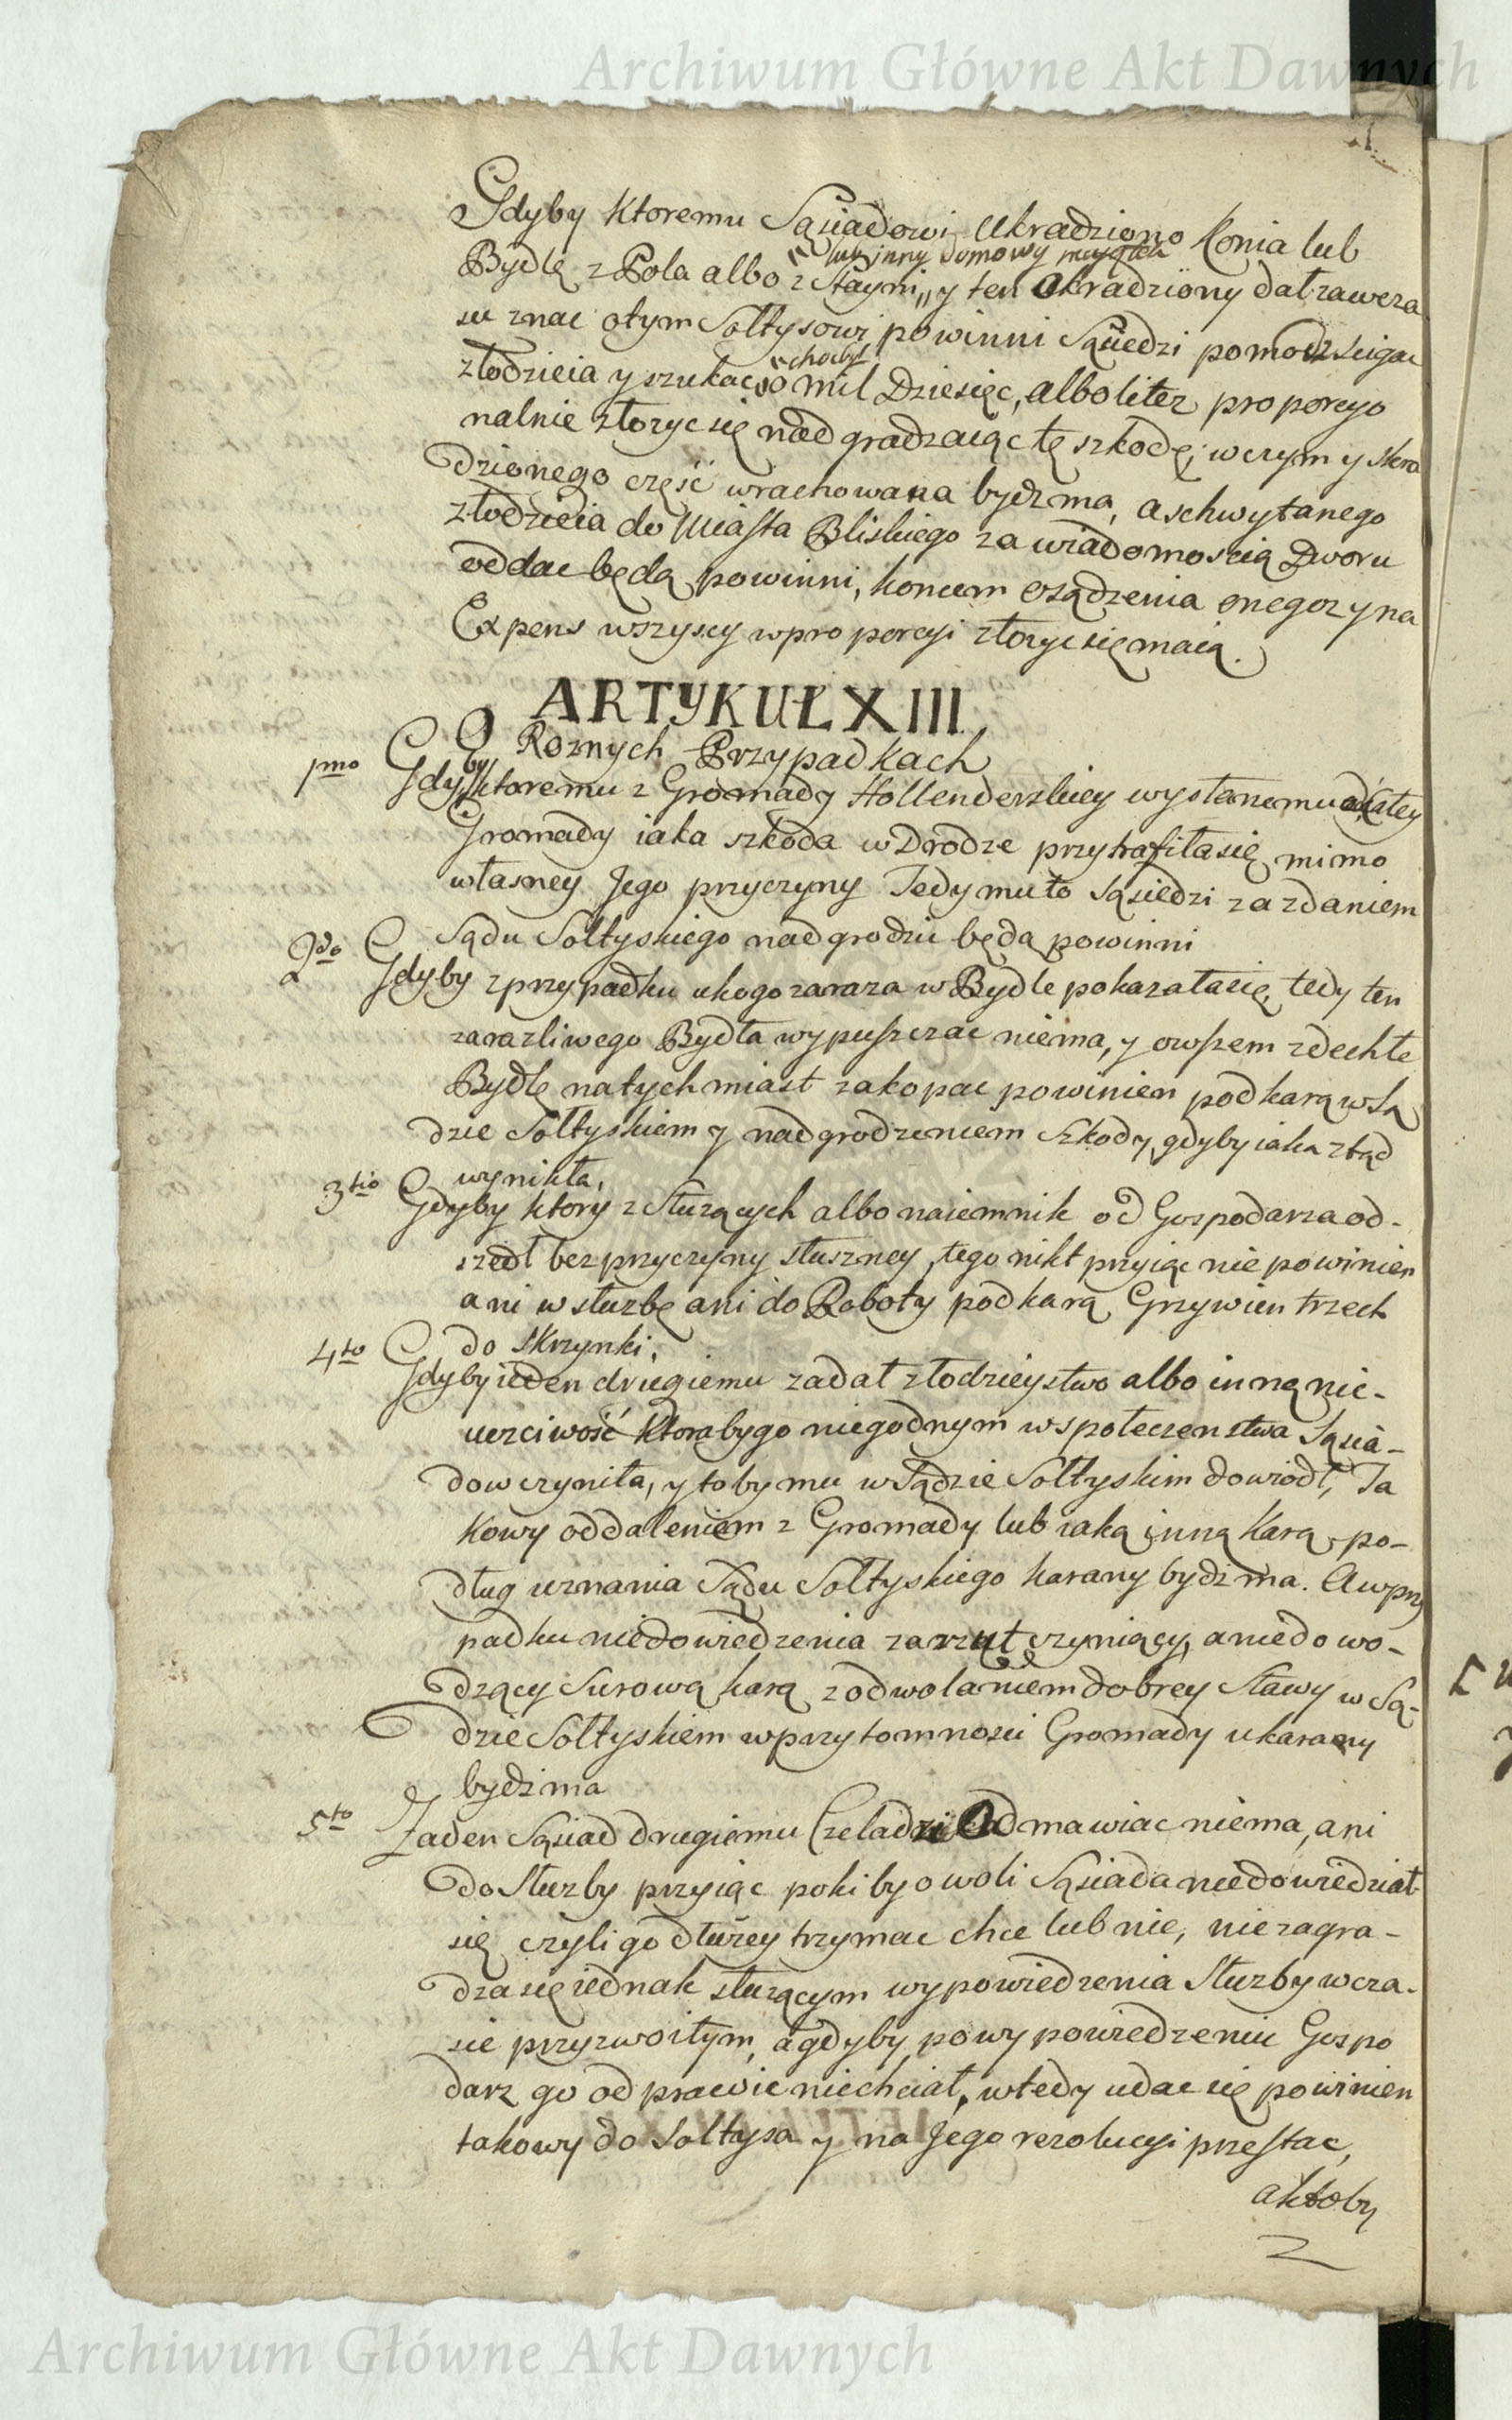 Archiwum Główne Akt Dawnych
Gdyby ktoremu Sąsiadowi Ukradziono Konia lub
lub inny domowy maiątek
Bydlę z Pola albo z Stayni,, y ten Okradziony dał zawcza
su znac o tym Sołtysowi powinni Sąsiedzi pomodz scigac
choćby
złodzieia y szukac o mil Dziesięc, albo liter proporcyo
nalnie złozyc się nadgradzaiąc tę szkodę, w czym y skra
dzionego część wrachowana bydz ma, a schwytanego
złodzieia do Miasta Bliskiego za wiadomoscią Dworu
oddac będą powinni, koncem osądzenia onegoz y na
Expens wszyscy w proporcyi złozyc się maią.
ARTYKUŁ XIII.
O Roznych Przypadkach
1mo Gdyby ktoremu z Gromady Hollenderskiey wysłanemu od całey
Gromady iaka szkoda w Drodze przytrafiła się mimo
własney Jego przyczyny Tedy mu to Sąsiedzi za zdaniem
Sądu Sołtyskiego nadgrodzic będą powinni
2do Gdyby z przypadku u kogo zaraza w Bydle pokazała się, tedy ten
zarazliwego Bydła wypuszczac niema, y owszem zdechłe
Bydlę natychmiast zakopac powinien pod karą w Są
dzie Sołtyskiem y nadgrodzeniem Szkody, gdyby iaka ztąd
wynikła,
3tio Gdyby ktory z Słuzących albo naiemnik od Gospodarza od-
szedł bez przyczyny słuszney, tego nikt przyiąc nie powinien
ani w słuzbę ani do Roboty pod karą Grzywien trzech
do Skrzynki.
4to Gdyby ieden drugiemu zadał złodzieystwo albo inną nie-
uczciwość ktoraby go niegodnym wspołeczenstwa Sąsia-
dow czyniła, y to by mu w Sądzie Sołtyskim dowiodł, Ta
kowy oddaleniem z Gromady lub iaką inną karą po-
dług uznania Sądu Sołtyskiego karany bydz ma. A w przy
padku niedowiedzenia zarzut czyniący, a niedowo-
dzący surową karą z odwołaniem dobrey Sławy w Są-
dzie Sołtyskiem w przytomnosci Gromady ukarany
bydz ma
5to Zaden Sąsiad drugiemu Czeladzi Odmawiac niema, ani
do Słuzby przyiąc poki by o woli Sąsiada niedowiedział
się czyli go dłuzey trzymac chce lub nie, nie zagra-
dza się iednak słuzącym wypowiedzenia Słuzby w cza-
sie przyzwoitym, a gdyby po wypowiedzeniu Gospo
darz go odprawic niechciał, wtedy udac się powinien
takowy do Sołtysa y na Jego rezolucyi przestac,
aktoby
Archiwum Główne Akt Dawnych